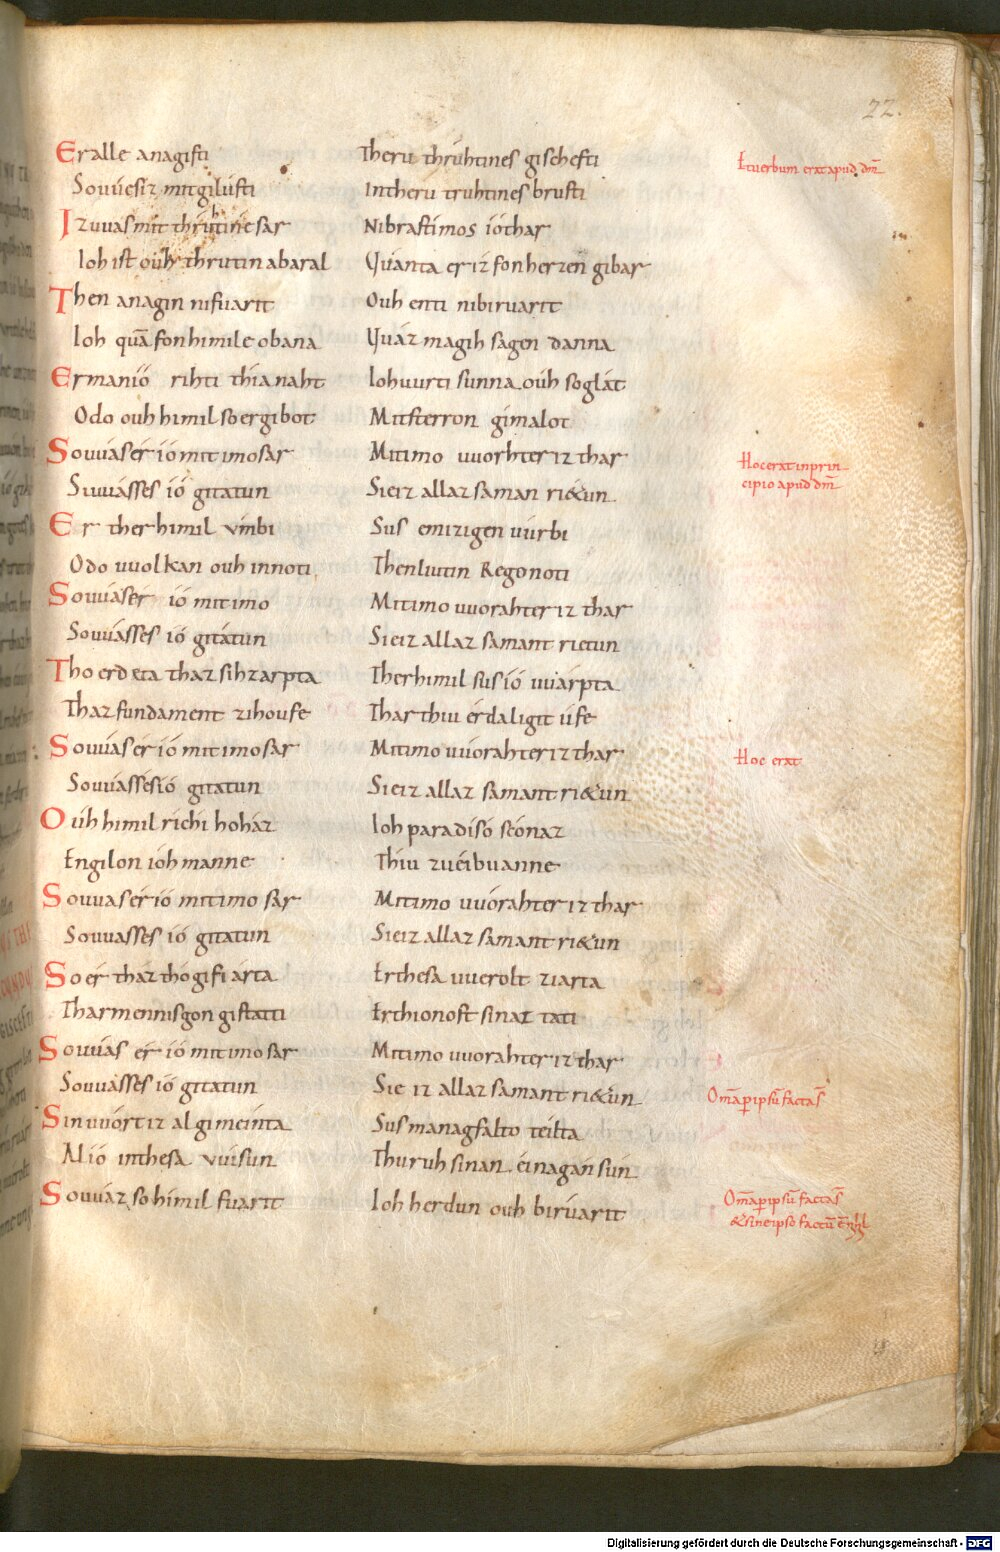 22.
Er alle anagifti Theru thrúhtines giscefti
Et uerbum erat apud dm̄
So uúes iz mit gilústi In theru truhtines brusti
Iz uuas mit thrúhtine sar Ni brast imos io thar
Ioh ist oúh thrutin ab ar al Uuanta er iz fon herzen gibar
Then anagin ni fuarit Ouh enti ni biruarit
Ioh quā fon himile obana Uuáz mag ih sagen danna
Er manió rihti thia naht Ioh uurti sunna oúh so glát
Odo ouh himil so er gibot Mit sterron gimalot
So uuás ér ió mit imo sar Mit imo uuorhter iz thar
Hoc erat in prin
So uuásses ió gitatun Sie iz allaz saman ri&un
cipio apud dm̄
Er ther himil vmbi Sus emizigen uúrbi
Odo uuolkan ouh in noti Then liutin Regonoti
So uuás er ió mit imo Mit imo uuorahter iz thar
So uuásses ió gitátun Sie iz allaz samant rietun
Tho er deta thaz sih zarpta Ther himil sus ió uuárpta
Thaz fundament zi houfe Thar thiu érda ligit úfe
So uuás ér ió mit imo sar Mit imo uuorahter iz thar
Hoc erat
So uuásses ió gitatun Sie iz allaz samant ri&un
Oúh himilrichi hohaz Ioh paradiso sconaz
Engilon ióh manne Thiu zuéi buanne
So uuas ér ió mit imo sar Mit imo uuórahter iz thar
So uuásses ió gitatun Sie iz allaz samant ri&un
So ér tház thó gifiarta Er thesa uuerolt ziarta
Thar mennisgon gistatti Er thionost sinaz tati
So uuás er ió mit imo sar Mit imo uuorahter iz thar
So uuásses ió gitatun Sie iz allaz samant ri&un
Om̄a p ipsū facta s̄
Sin uuórt iz al gimeinta Sus managfalto teilta
Al ió in thesa vuisun Thuruh sinan einagan sun
So uuaz so himil fuarit Ioh herdun ouh birúarit
Om̄a p ipsū facta s̄
& sine ipso factū ē nihl
Digitalisierung gefördert durch die Deutsche Forschungsgemeinschaft - DFG